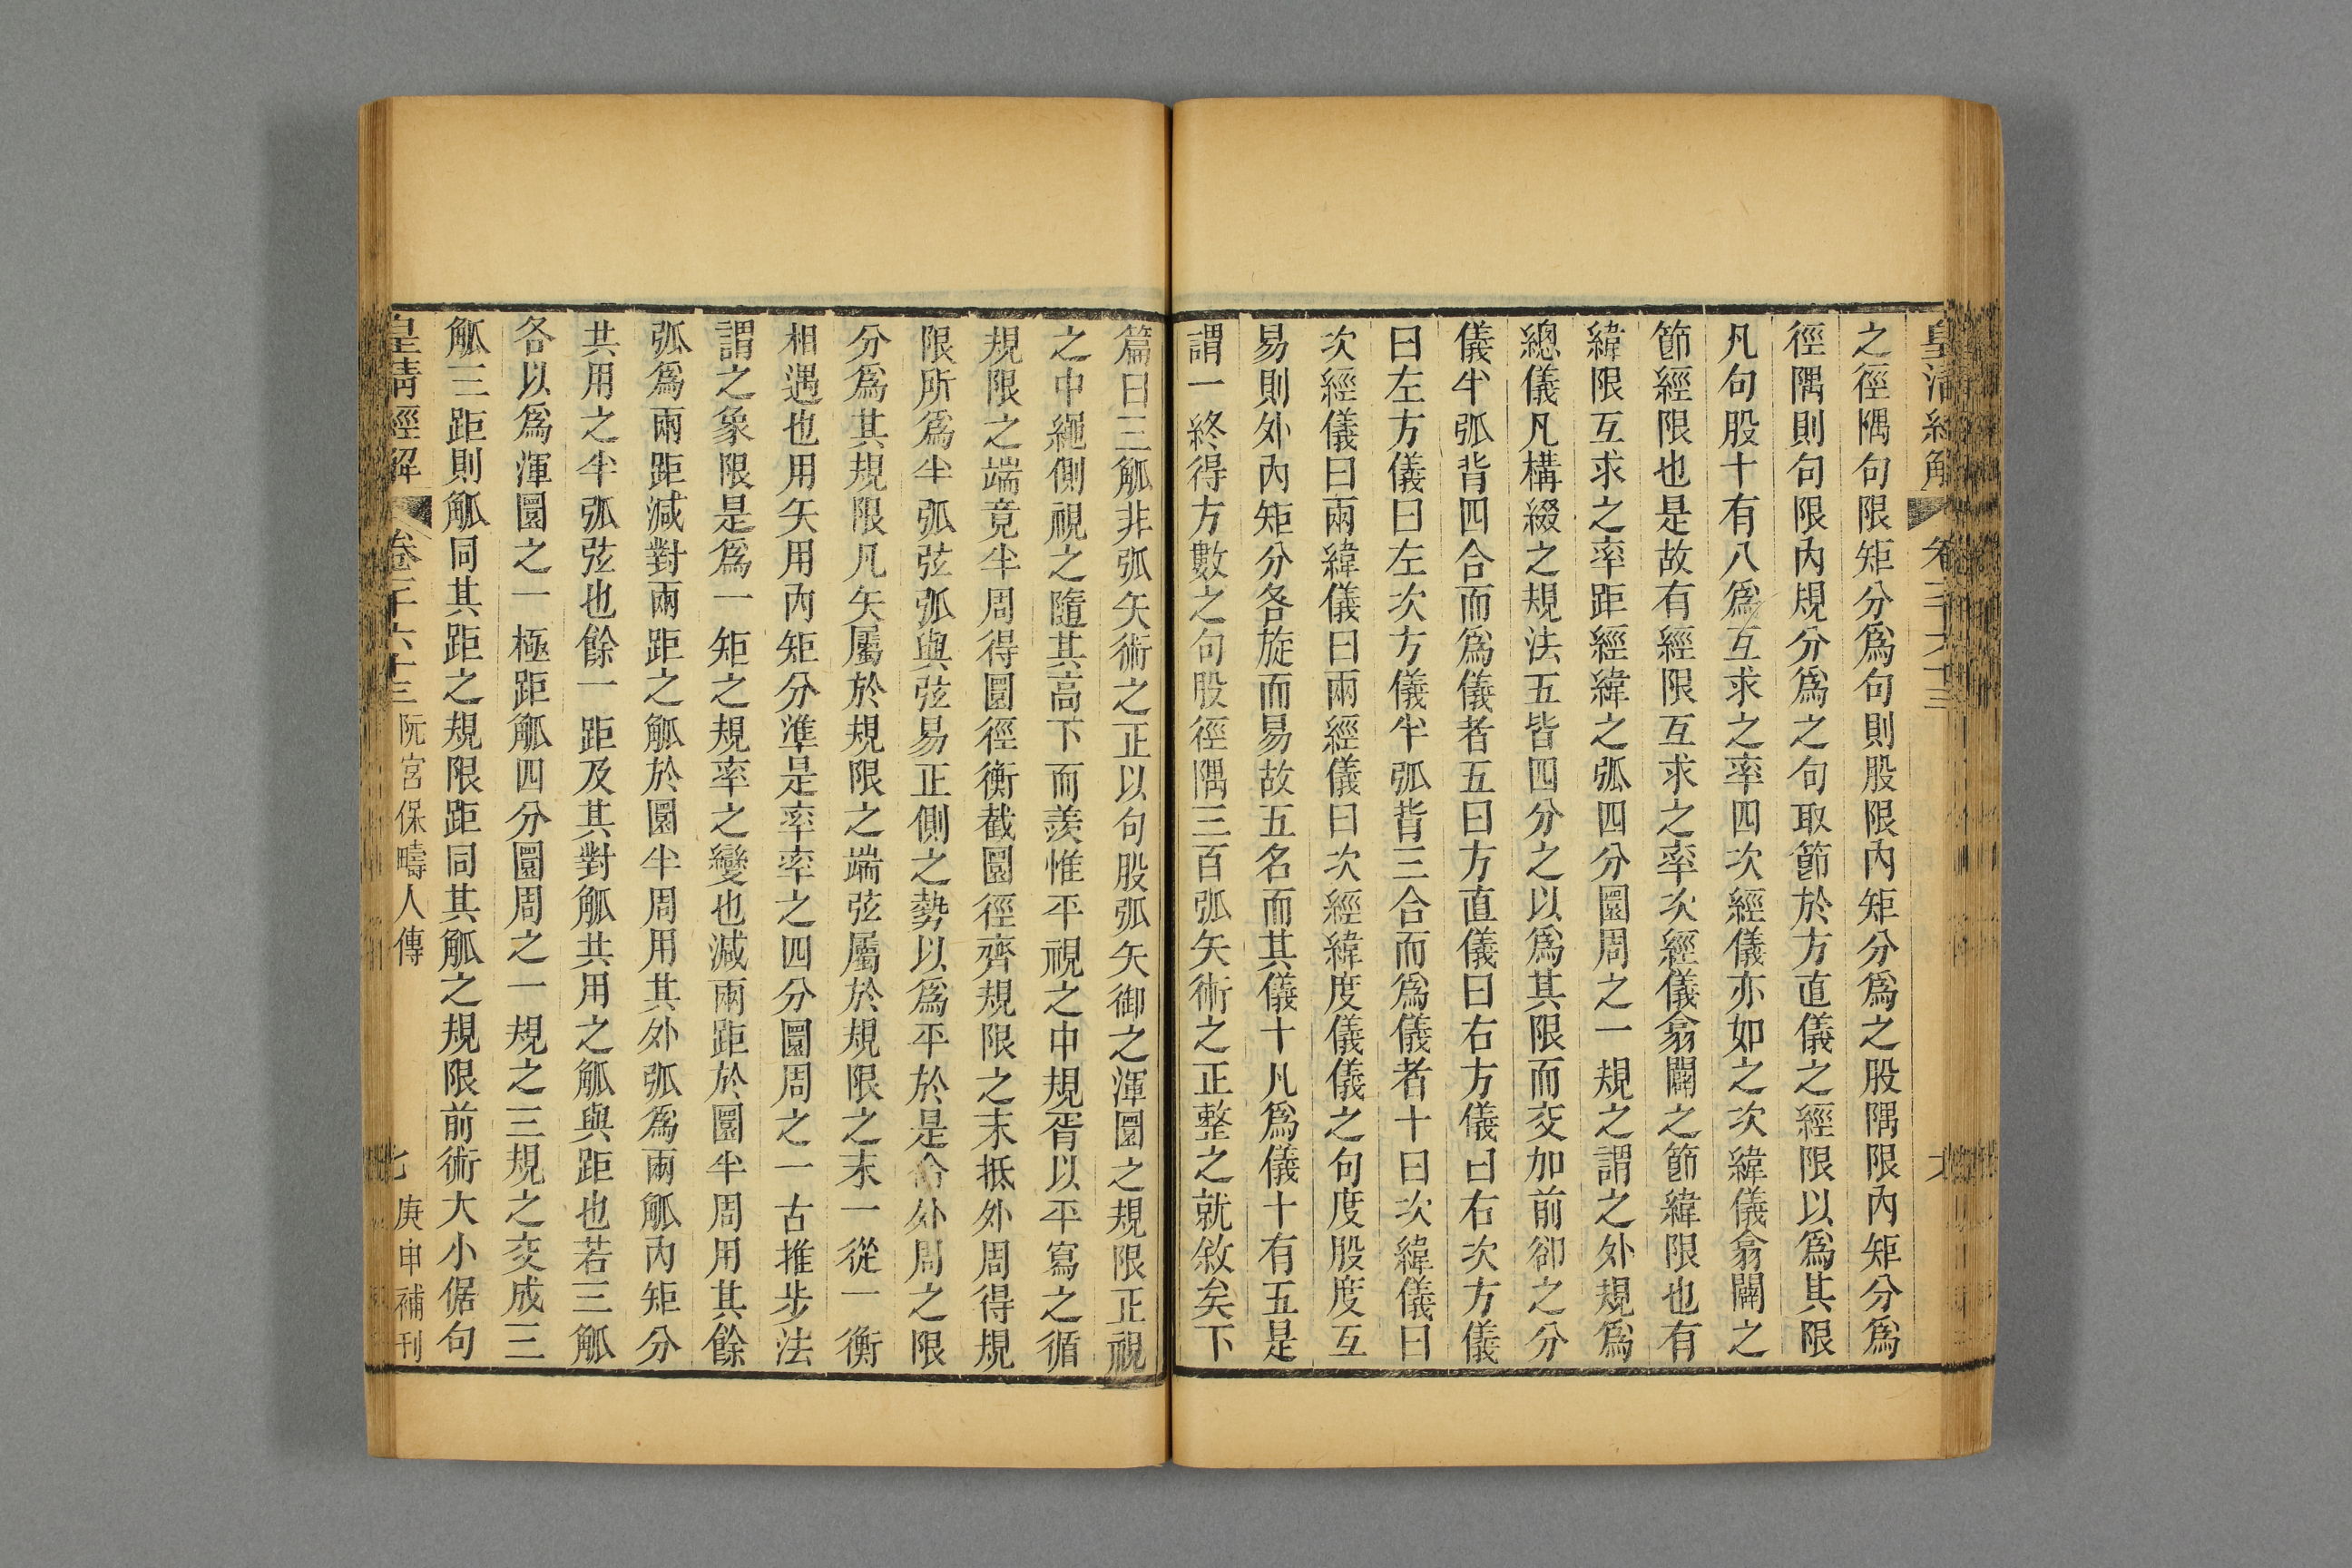 皇清經解 卷
之徑隅句限矩分爲句則股限內矩分爲之股隅限內矩分爲
徑隅則句限內規分爲之句取節於方直儀之經限以爲其限
凡句股十有八爲互求之率四次經儀亦如之次緯儀翕闢之
節經限也是故有經限互求之率次經儀翕闢之節緯限也有
緯限互求之率距經緯之弧四分圜周之一規之謂之外規爲
總儀凡構綴之規法五皆四分之以爲其限而交加前卻之分
儀半弧背四合而爲儀者五曰方直儀曰右方儀曰右次方儀
曰左方儀曰左次方儀半弧背三合而爲儀者十曰次緯儀曰
次經儀曰兩緯儀曰兩經儀曰次經緯度儀儀之句度股度互
易則外內矩分各旋而易故五名而其儀十凡爲儀十有五是
謂一終得方數之句股徑隅三百弧矢術之正整之就敘矣下
篇曰三觚非弧矢術之正以句股弧矢御之渾圜之規限正視
之中繩側視之隨其高下而羨惟平視之中規胥以平寫之循
規限之端竟半周得圜徑衡截圜徑齊規限之末抵外周得規
限所爲半弧弦弧與弦易正側之勢以爲平於是命外周之限
分爲其規限凡矢屬於規限之端弦屬於規限之末一從一衡
相遇也用矢用內矩分準是率率之四分圜周之一古推步法
謂之象限是爲一矩之規率之變也減兩距於圜半周用其餘
弧爲兩距減對兩距之觚於圜半周用其外弧爲兩觚內矩分
共用之半弧弦也餘一距及其對觚共用之觚與距也若三觚
各以爲渾圜之一極距觚四分圜周之一規之三規之交成三
觚三距則觚同其距之規限距同其觚之規限前術大小倨句
皇清經解 卷一千六十三 阮宮保疇人傳 七 庚申補刊